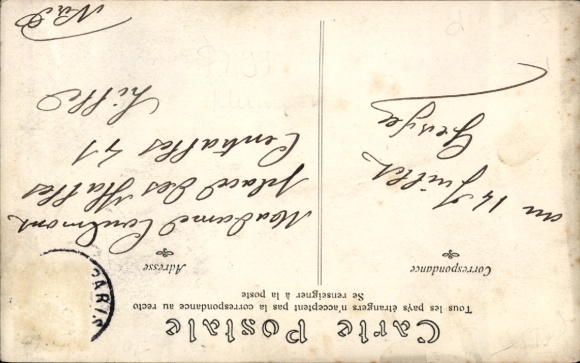 Carte Postale
Tous les pays étrangers n'acceptent pas la correspondance au recto
Se renseigner à la poste
Correspondance
au 14
Juillet
Adresse
PARIS
Madame
place des Halles
Centralles 41
Lille
Nord